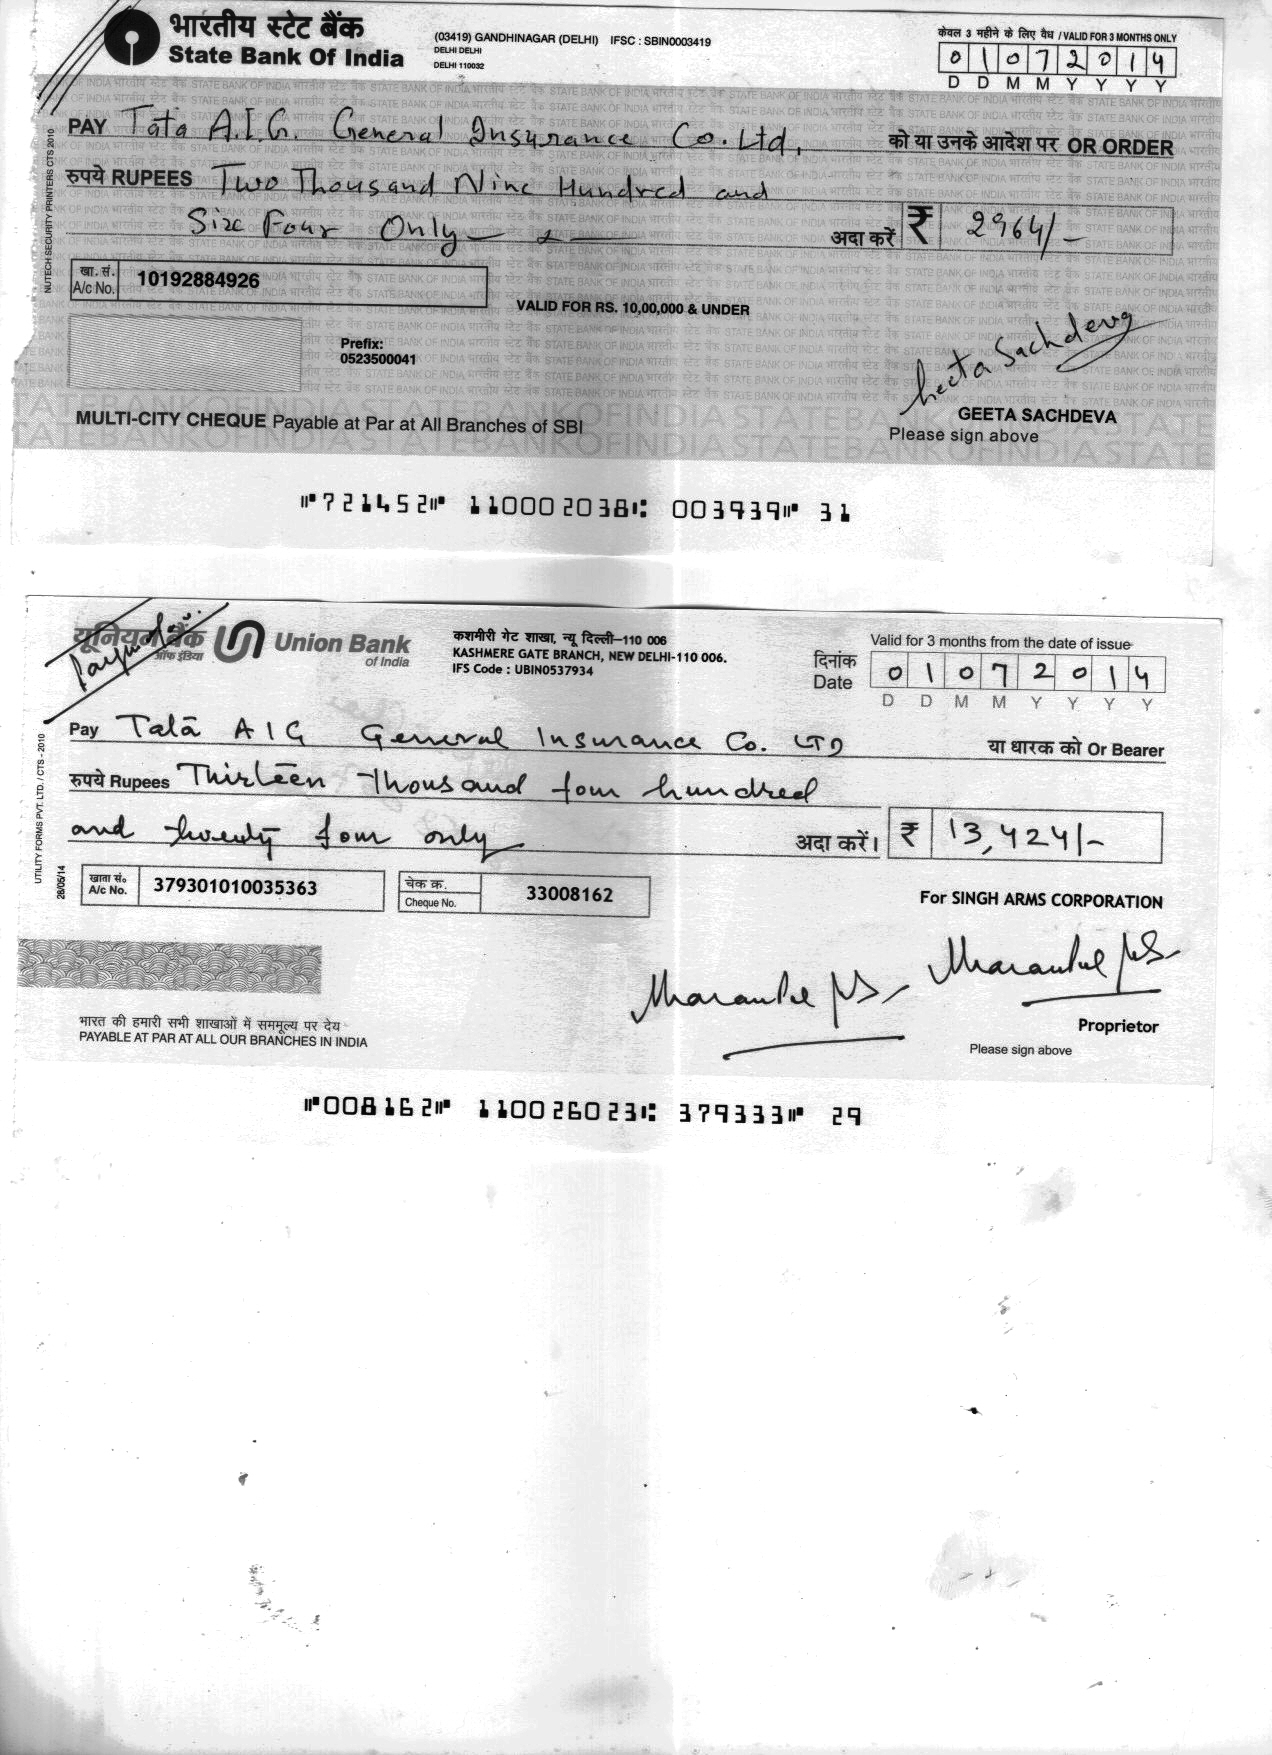 भारतीय स्टेट बैंक
State Bank Of India
(03419) GANDHINAGAR (DELHI) IFSC : SBIN0003419
DELHI DELHI
DELHI 110032
केवल 3 महीने के लिए वैध / VALID FOR 3 MONTHS ONLY
0 1 0 7 2 0 1 4
D D M M Y Y Y Y
PAY Tata A.I.G. General Insurance Co. Ltd. को या उनके आदेश पर OR ORDER
रुपये RUPEES Two Thousand Nine Hundred and
Six Four Only अदा करें ₹ 2964/-
खा. सं. A/c No. 10192884926
VALID FOR RS. 10,00,000 & UNDER
Prefix:
0523500041
Geeta Sachdeva
GEETA SACHDEVA
MULTI-CITY CHEQUE Payable at Par at All Branches of SBI
Please sign above
NUTECH SECURITY PRINTERS CTS 2010
⑈721452⑈ 110002038⑆ 003939⑈ 31
यूनियन बैंक
ऑफ इंडिया
Union Bank
of India
कशमीरी गेट शाखा, न्यू दिल्ली-110 006
KASHMERE GATE BRANCH, NEW DELHI-110 006.
IFS Code : UBIN0537934
Valid for 3 months from the date of issue
दिनांक Date 0 1 0 7 2 0 1 4
D D M M Y Y Y Y
Pay Tata AIG General Insurance Co. LTD या धारक को Or Bearer
रुपये Rupees Thirteen thousand four hundred
and twenty four only अदा करें। ₹ 13,424/-
खाता सं. A/c No. 379301010035363
चेक क्र. Cheque No. 33008162
For SINGH ARMS CORPORATION
Proprietor
Please sign above
भारत की हमारी सभी शाखाओं में सममूल्य पर देय
PAYABLE AT PAR AT ALL OUR BRANCHES IN INDIA
UTILITY FORMS PVT. LTD. / CTS - 2010
26/05/14
⑈008162⑈ 110026023⑆ 379333⑈ 29